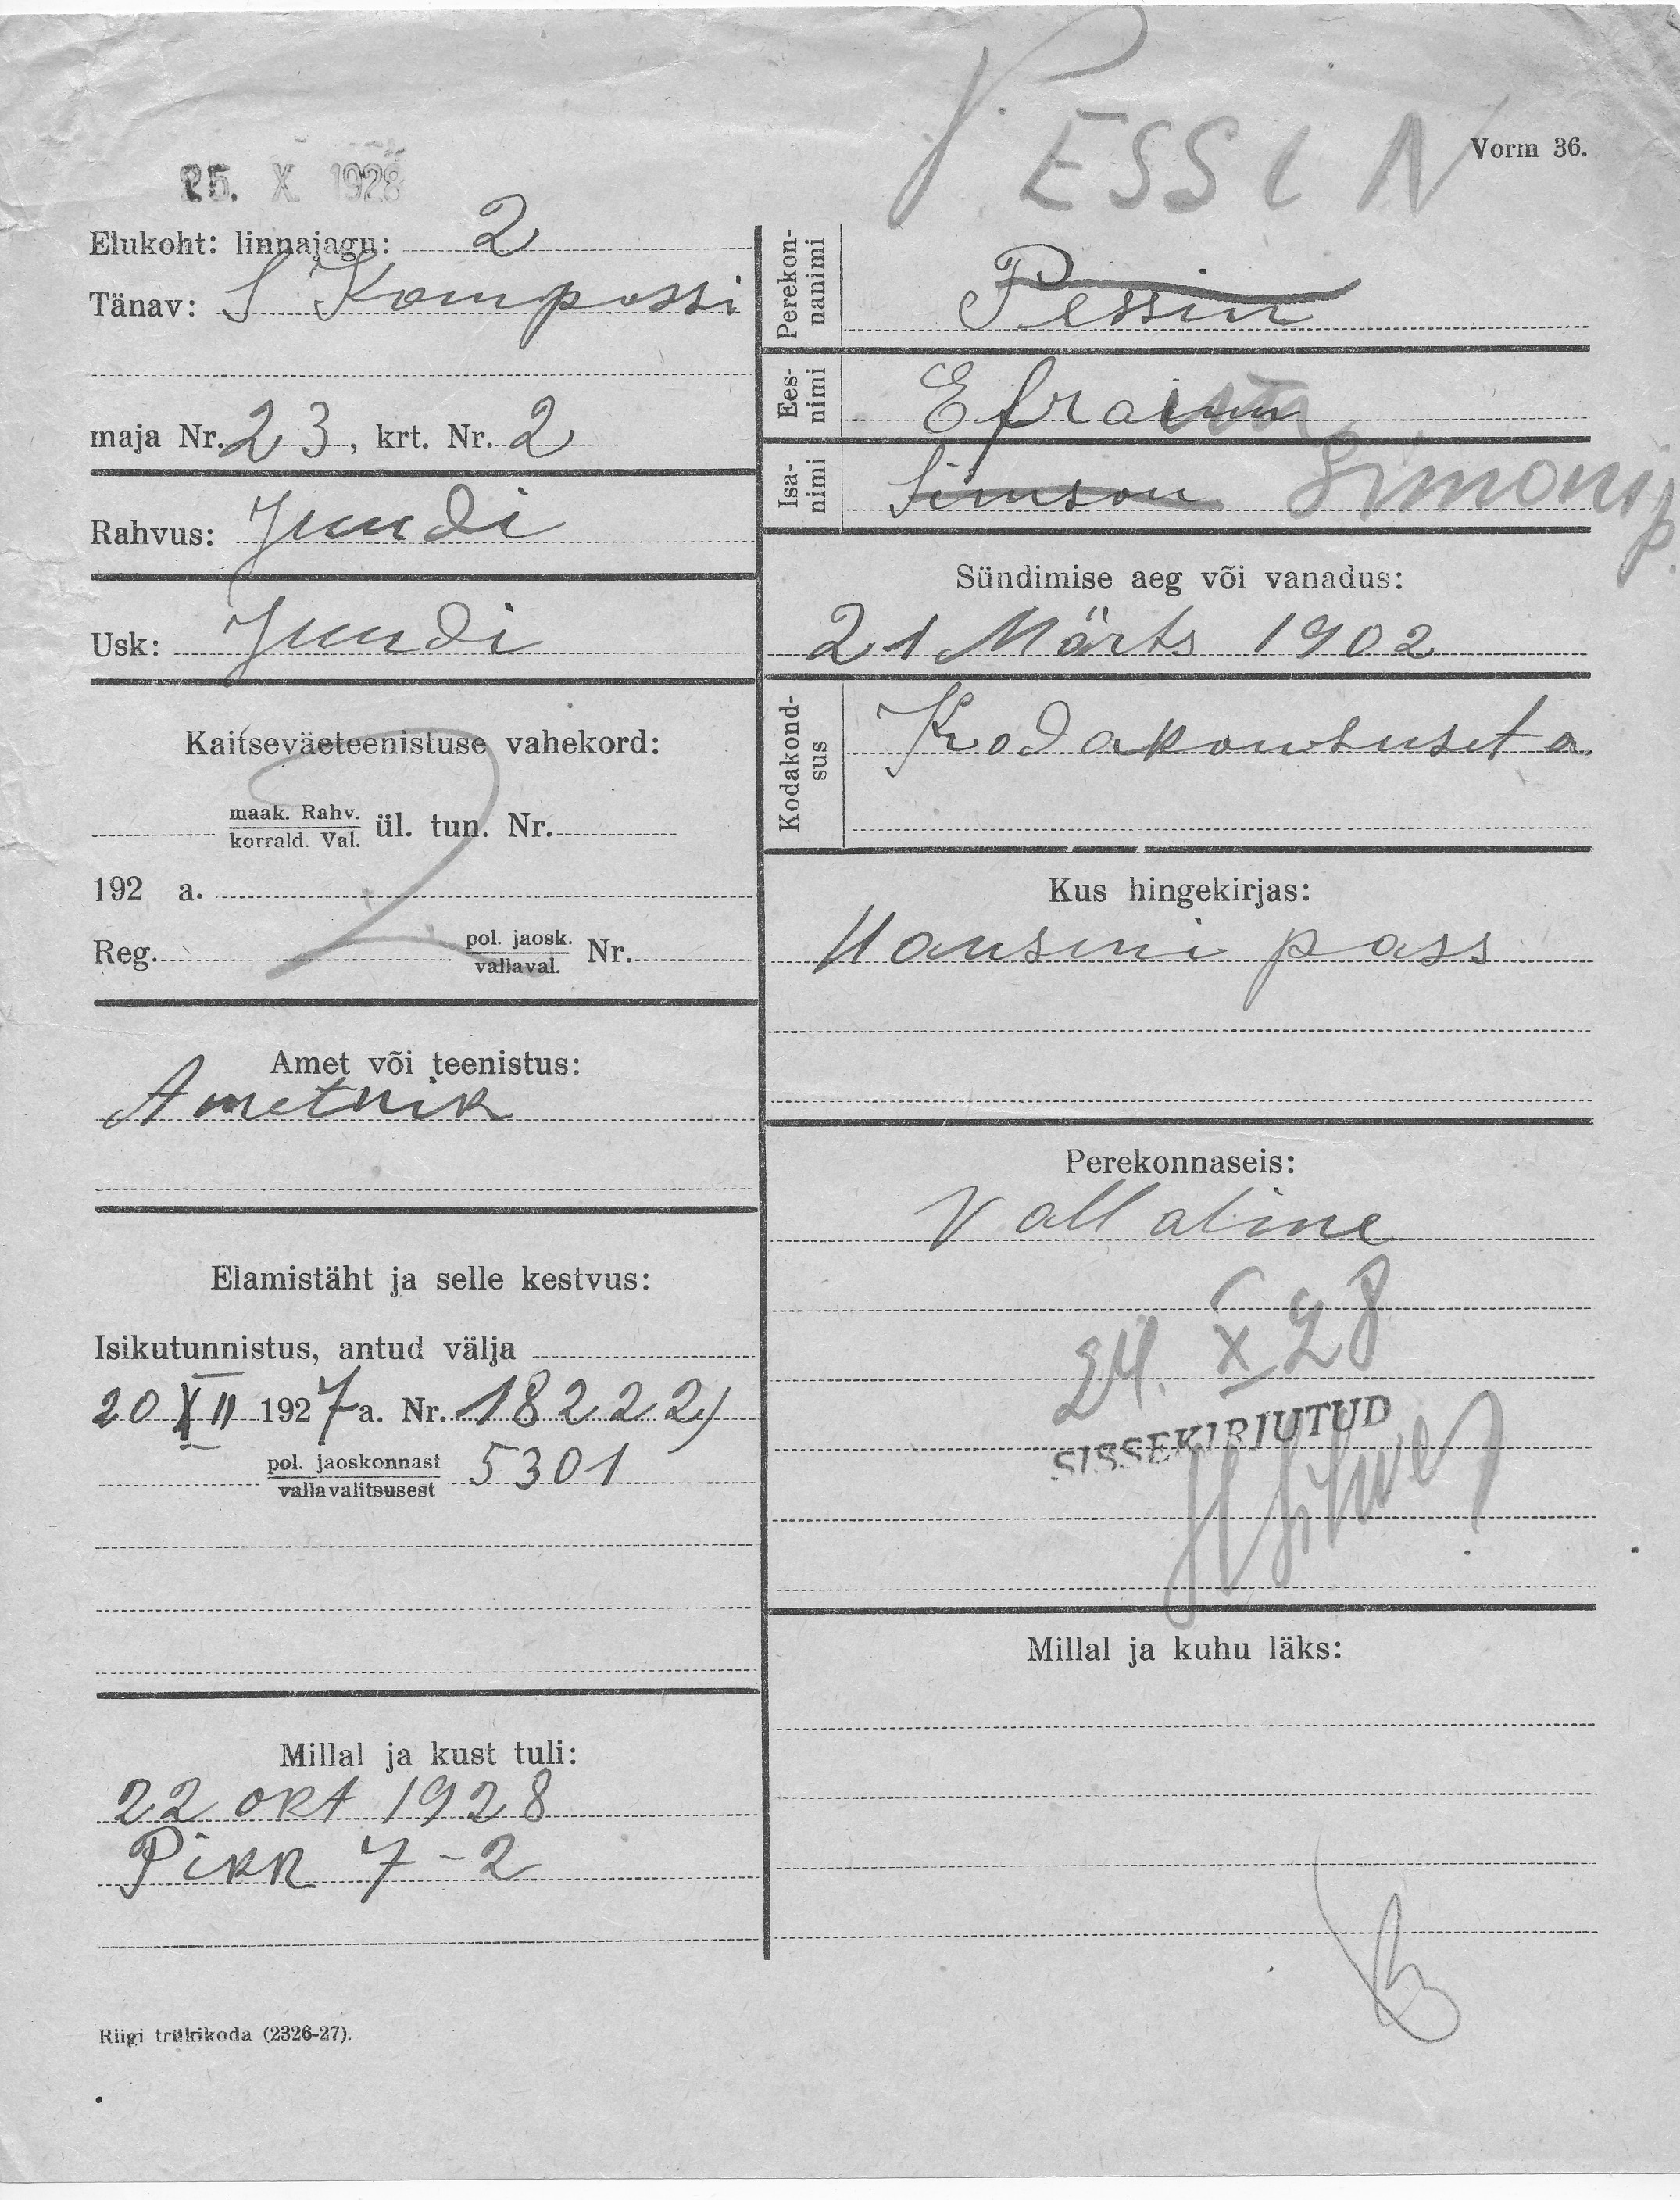 PESSIN
Vorm 36.
25. X 1928
Elukoht: linnajagu: 2
Tänav: S Kompassi
maja Nr. 23, krt. Nr. 2
Rahvus: Juudi
Usk: Juudi
Kaitseväeteenistuse vahekord:
2
maak. Rahv.
korrald. Val.
ül. tun. Nr.
192 a.
Reg. pol. jaosk.
vallaval.
Nr.
Amet või teenistus:
Ametnik
Elamistäht ja selle kestvus:
Isikutunnistus, antud välja
20 XII 1927 a. Nr. 18222)
pol. jaoskonnast
vallavalitsusest
5301
Millal ja kust tuli:
22 okt 1928
Pikk 7-2
Riigi trükikoda (2326-27).
Perekonnanimi
Pessin
Eesnimi
Efraim
Isanimi
Simson Simoni p.
Sündimise aeg või vanadus:
21 Märts 1902
Kodakondsus
Kodakontsuseta
Kus hingekirjas:
Nanseni pass
Perekonnaseis:
Vallaline
24. X 28
SISSEKIRJUTUD
Millal ja kuhu läks: